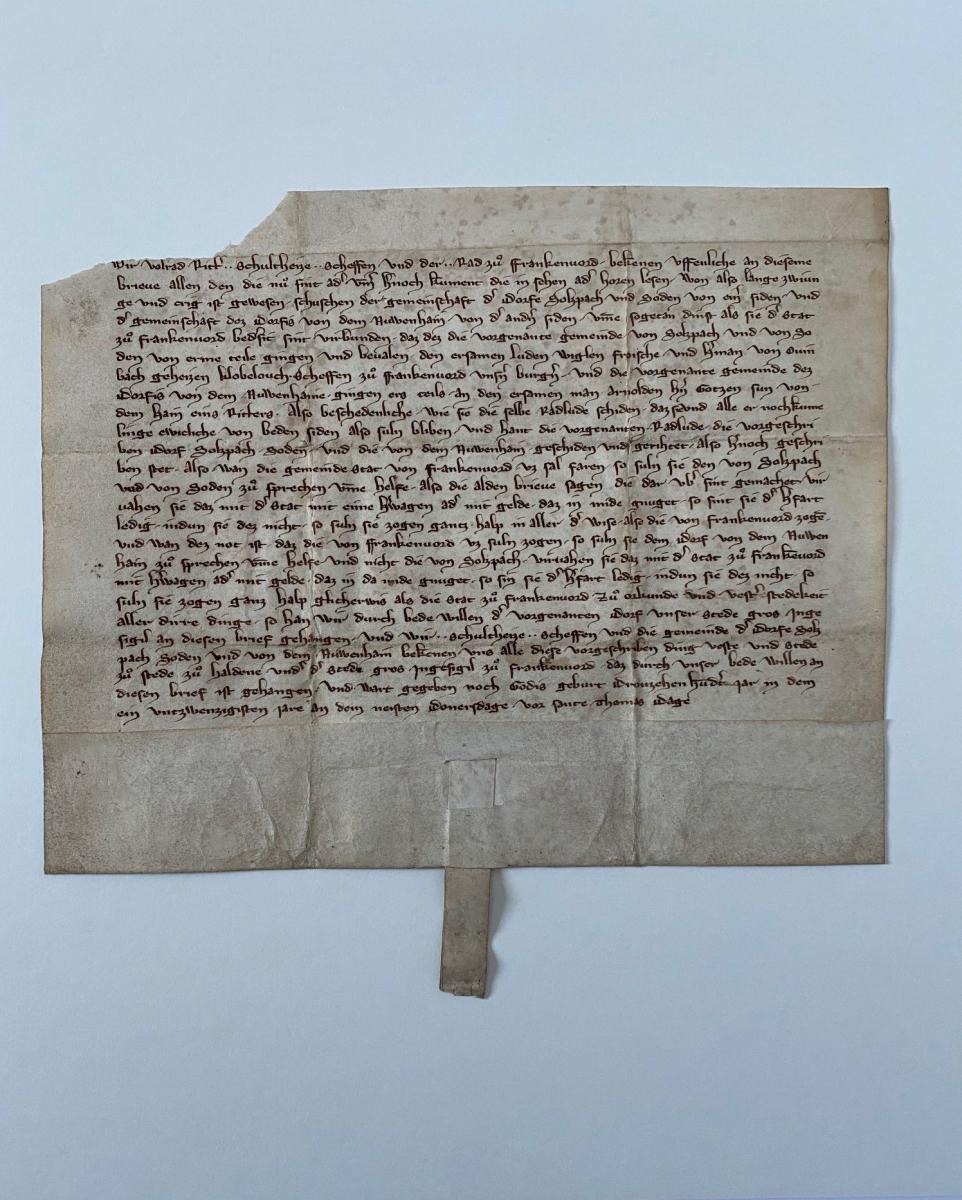 Wir Volrad Ritt᷑ ·· Schultheize ·· Scheffen und der ·· Rad zuͦ Frankenvord · bekenen uffenliche an dieseme
brieve allen den die nuͦ sint ad᷑ h᷑noch kument die in sehen ad᷑ horen lesen · Won also lange zwiun
ge und crig ist gewesen · schuschen der gemeinschaft d᷑ Dorfe Solzpach und Soden von ein᷑ siden · und
d᷑ gemeinschaft dez Dorfis von dem Nuwenhain · von d᷑ and᷑n siden · um̄e sogetan dinst als sie d᷑ stat
zuͦ Frankenvord sint virbunden · daz dez die vorgenante gemeinde von Solzpach und von So
den von erme teile gingen und bevalen · den ersamen luden Wiglen froische · und H᷑man von
bach geheizen klobelouch · Scheffen zuͦ Frankenvord uns᷑n burg᷑n · und die vorgenante gemeinde dez
Dorfis von dem Nuwenhaine · gingen ers teils · an den ersamen man Arnolden h᷑n Gotzen sun · von ·
dem Hain eins Ritters · Also beschedenliche · wie sie die selbe Radlude schiden · daz alle er nochkume
linge ewicliche · von beden siden also suln bliben · und hant die vorgenanten · Radlude · die vorgeschri
ben Dorf Solzpach · Soden · und die von dem Nuwenhain · geschiden und gerihtet · also h᷑noch geschri
ben stet · also wan die gemeinde stat von Frankenvord · uz sal faren · so suln sie den von Solzpach
und von Soden zuͦ sprechen um̄e helfe · also die alden brieve sagen die dar ub᷑ sint gemachet · vir
vahen sie daz mit d᷑ stat mit eime h᷑wagen ad᷑ mit gelde · daz in mide gnuget · so sint sie d᷑ h᷑fart
ledig · indun sie dez nicht · so suln sie zogen gantz · halp in aller d᷑ wise · also die von Frankenvord zogē ·
und wan dez not ist · daz die von Frankenvord uz suln zogen · so suln sie dem Dorf von dem Nuwen
hain zuͦ sprechen um̄e helfe · und nicht die von Solzpach · virvahen sie daz mit d᷑ stat zuͦ Frankēvord
mit h᷑wagen ad᷑ mit gelde · daz in da mide gnuget · so sin sie d᷑ h᷑fart ledig · indun sie dez nicht · so
suln sie zogen ganz halp glicherwis als die stat zuͦ Frankenvord · Zuͦ orkunde und vest᷑ stedekeit
aller dirre dinge · so han wir durch bede willen d᷑ vorgenanten Dorf · unser stede gros inge
sigil an diesen brief gehangen · und wir ·· Schultheize ·· Scheffen und die gemeinde d᷑ Dorfe Solz
pach Soden und von dem Nuwenhain bekenen · uns alle diese vorgeschriben ding veste und stede
zuͦ stede zuͦ haldene und d᷑ stede gros ingesigil zuͦ Frankenvord · daz durch unser bede willen an
diesen brief ist gehangen · und wart gegeben noch Godis geburt Druzehen hund᷑t jar in dem
ein untzwenzigisten jare an dem neisten Donersdage · vor sente Thomas Dage